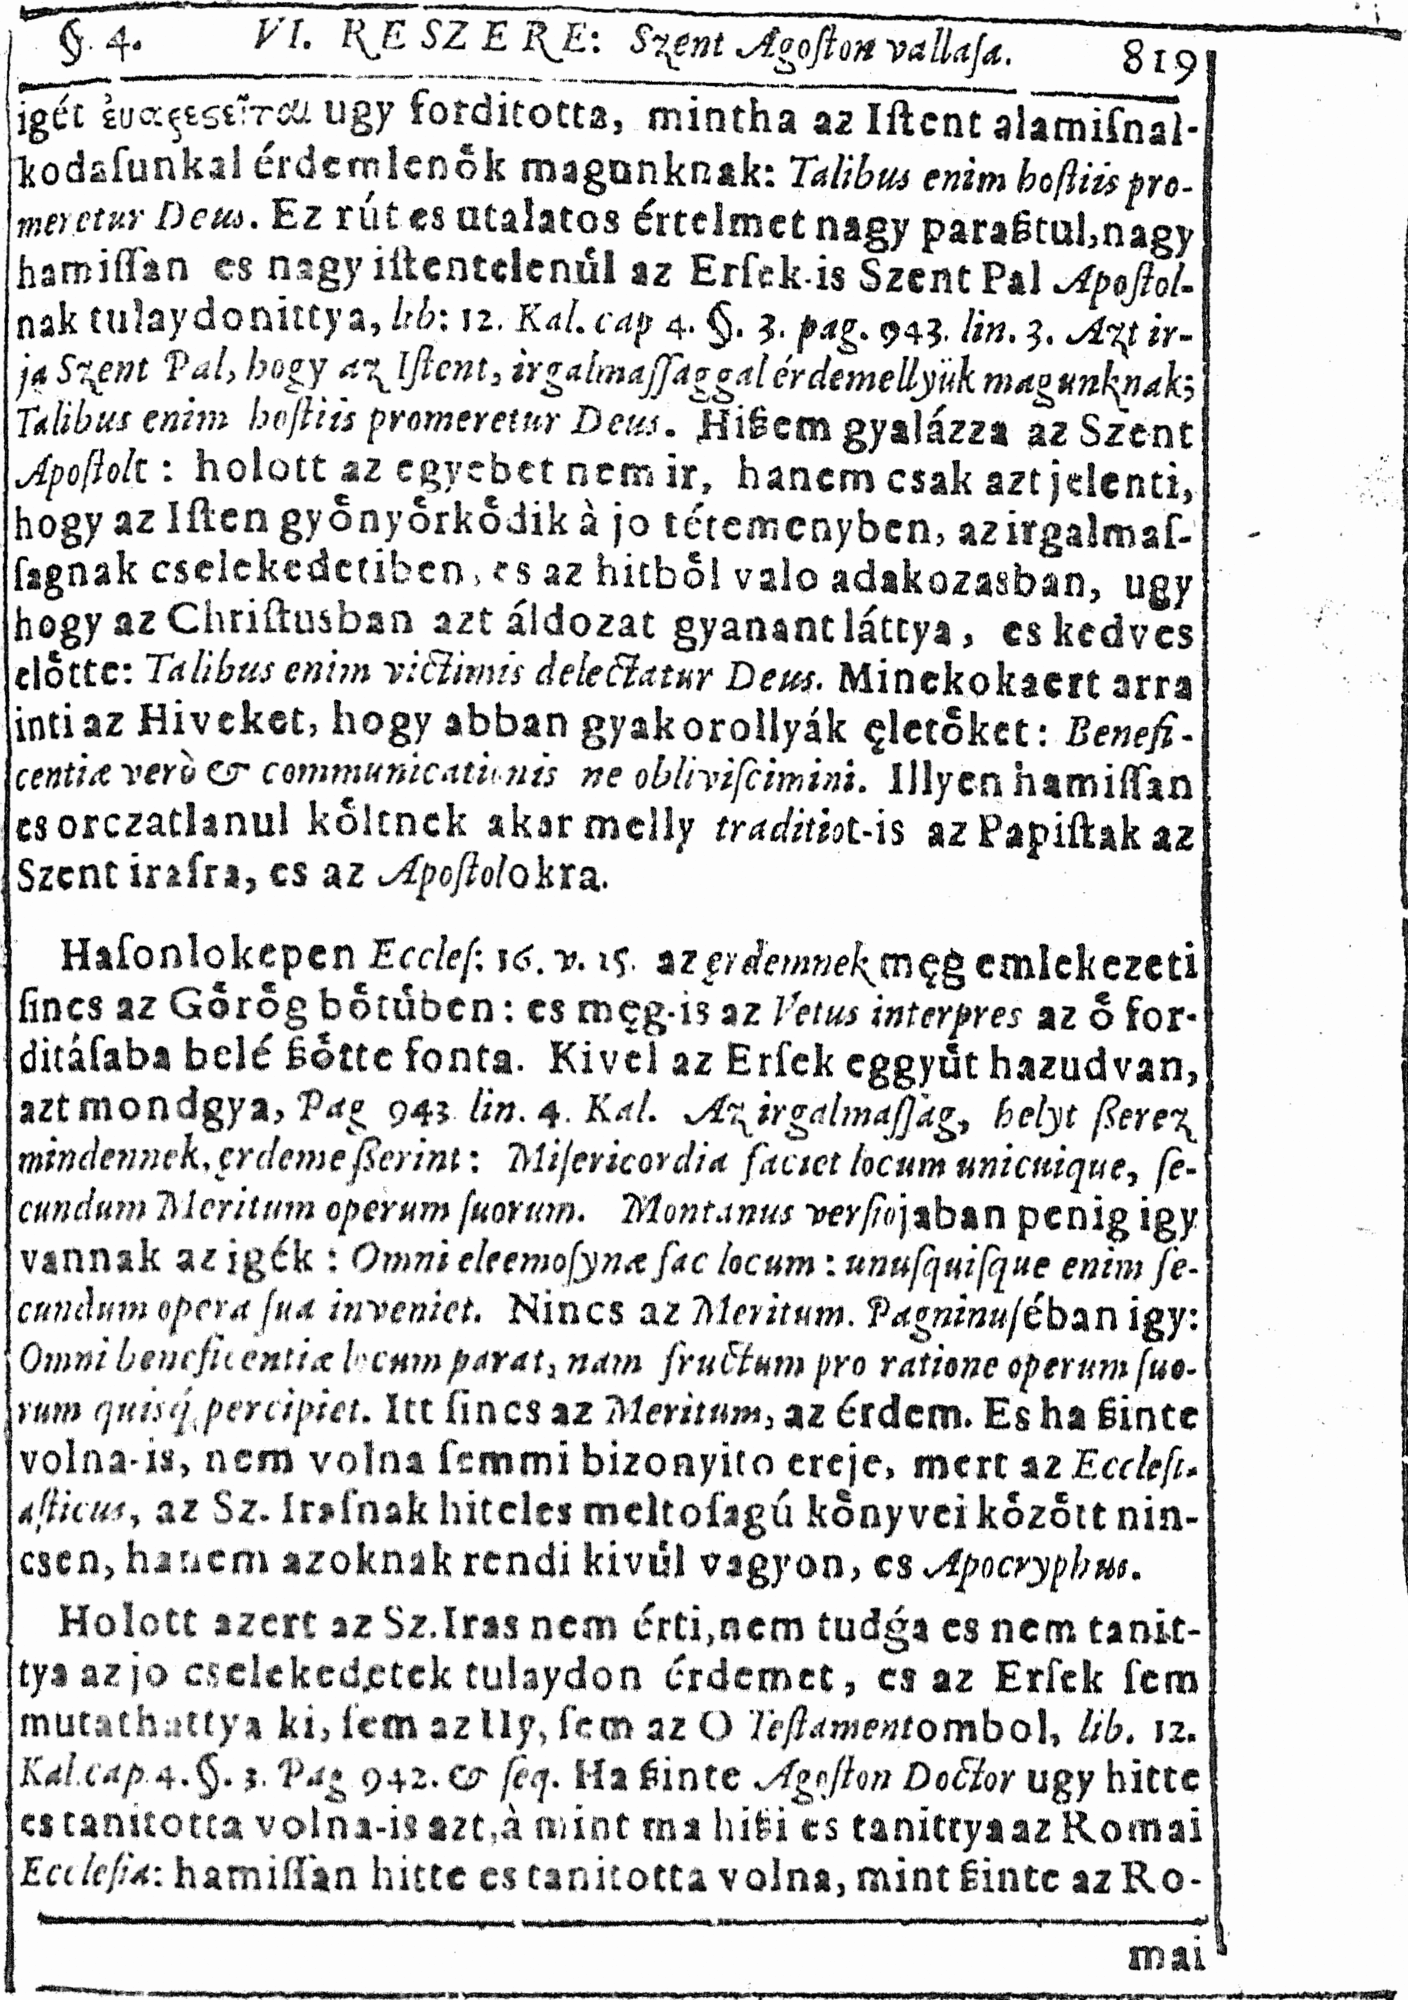 §. 4. VI. RESZERE: Szent Agoſton vallaſa. 819
igét ἐυαρεϛεῖται ugy forditotta, mintha az Iſtent alamiſnal-
kodaſunkal érdemlenoͤk magunknak: Talibus enim hoſtiis pro-
meretur Deus. Ez rút es utalatos értelmet nagy paraßtul, nagy
hamiſſan es nagy iſtentelenuͤl az Erſek-is Szent Pal Apoſtol-
nak tulaydonittya, lib: 12. Kal. cap 4. §. 3. pag. 943. lin. 3. Azt ir-
ja Szent Pal, hogy az Iſtent, irgalmaſſaggal érdemellyük magunknak;
Talibus enim hoſtiis promeretur Deus. Hißem gyalázza az Szent
Apoſtolt: holott az egyebet nem ir, hanem csak azt jelenti,
hogy az Iſten gyoͤnyoͤrkoͤdik à jo téteményben, az irgalmaſ-
ſagnak cselekedetiben, es az hitboͤl valo adakozasban, ugy
hogy az Chriſtusban azt áldozat gyanant láttya, es kedves
eloͤtte: Talibus enim victimis delectatur Deus. Minekokaert arra
inti az Hiveket, hogy abban gyakorollyák ęletoͤket: Benefi-
centiæ verò & communicationis ne obliviſcimini. Illyen hamiſſan
es orczatlanul koͤltnek akar melly traditiot-is az Papiſtak az
Szent iraſra, es az Apoſtolokra.
Haſonlokepen Eccleſ: 16. v. 15. az ęrdemnek męg emlekezeti
ſincs az Goͤroͤg boͤtuͤben: es męg-is az Vetus interpres az oͤ for-
ditáſaba belé ßoͤtte fonta. Kivel az Erſek eggyuͤt hazudvan,
azt mondgya, Pag 943 lin. 4. Kal. Az irgalmaſſag, helyt ßerez
mindennek, ęrdeme ßerint: Miſericordia faciet locum unicuique, ſe-
cundum Meritum operum ſuorum. Montanus verſiojaban penig igy
vannak az igék: Omni eleemoſynæ fac locum: unuſquiſque enim ſe-
cundum opera ſua inveniet. Nincs az Meritum. Pagninuſéban igy:
Omni beneficentiæ locum parat, nam fructum pro ratione operum ſuo-
rum quisq́; percipiet. Itt ſincs az Meritum, az érdem. Es ha ßinte
volna-is, nem volna ſemmi bizonyito ereje, mert az Eccleſi-
aſticus, az Sz. Iraſnak hiteles meltoſagú koͤnyvei koͤzoͤtt nin-
csen, hanem azoknak rendi kivuͤl vagyon, es Apocryphus.
Holott azert az Sz. Iras nem érti, nem tudǵa es nem tanit-
tya az jo cselekedetek tulaydon érdemet, es az Erſek ſem
mutathattya ki, ſem az Uy, ſem az O Teſtamentombol, lib. 12.
Kal. cap. 4. §. 3. Pag 942. & ſeq. Ha ßinte Agoſton Doctor ugy hitte
es tanitotta volna-is azt, à mint ma hißi es tanittya az Romai
Eccleſia: hamiſſan hitte es tanitotta volna, mint ßinte az Ro-
mai